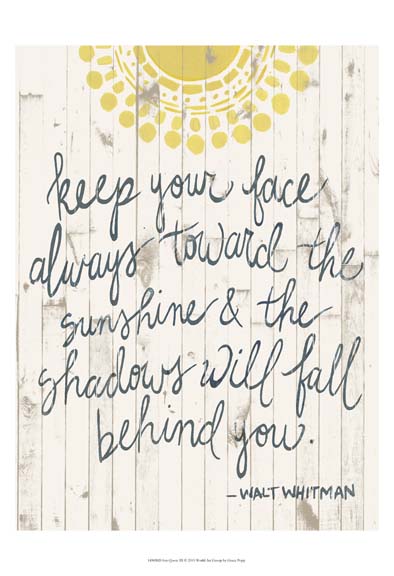 keep your face
always toward the
sunshine & the
shadows will fall
behind you.
- WALT WHITMAN